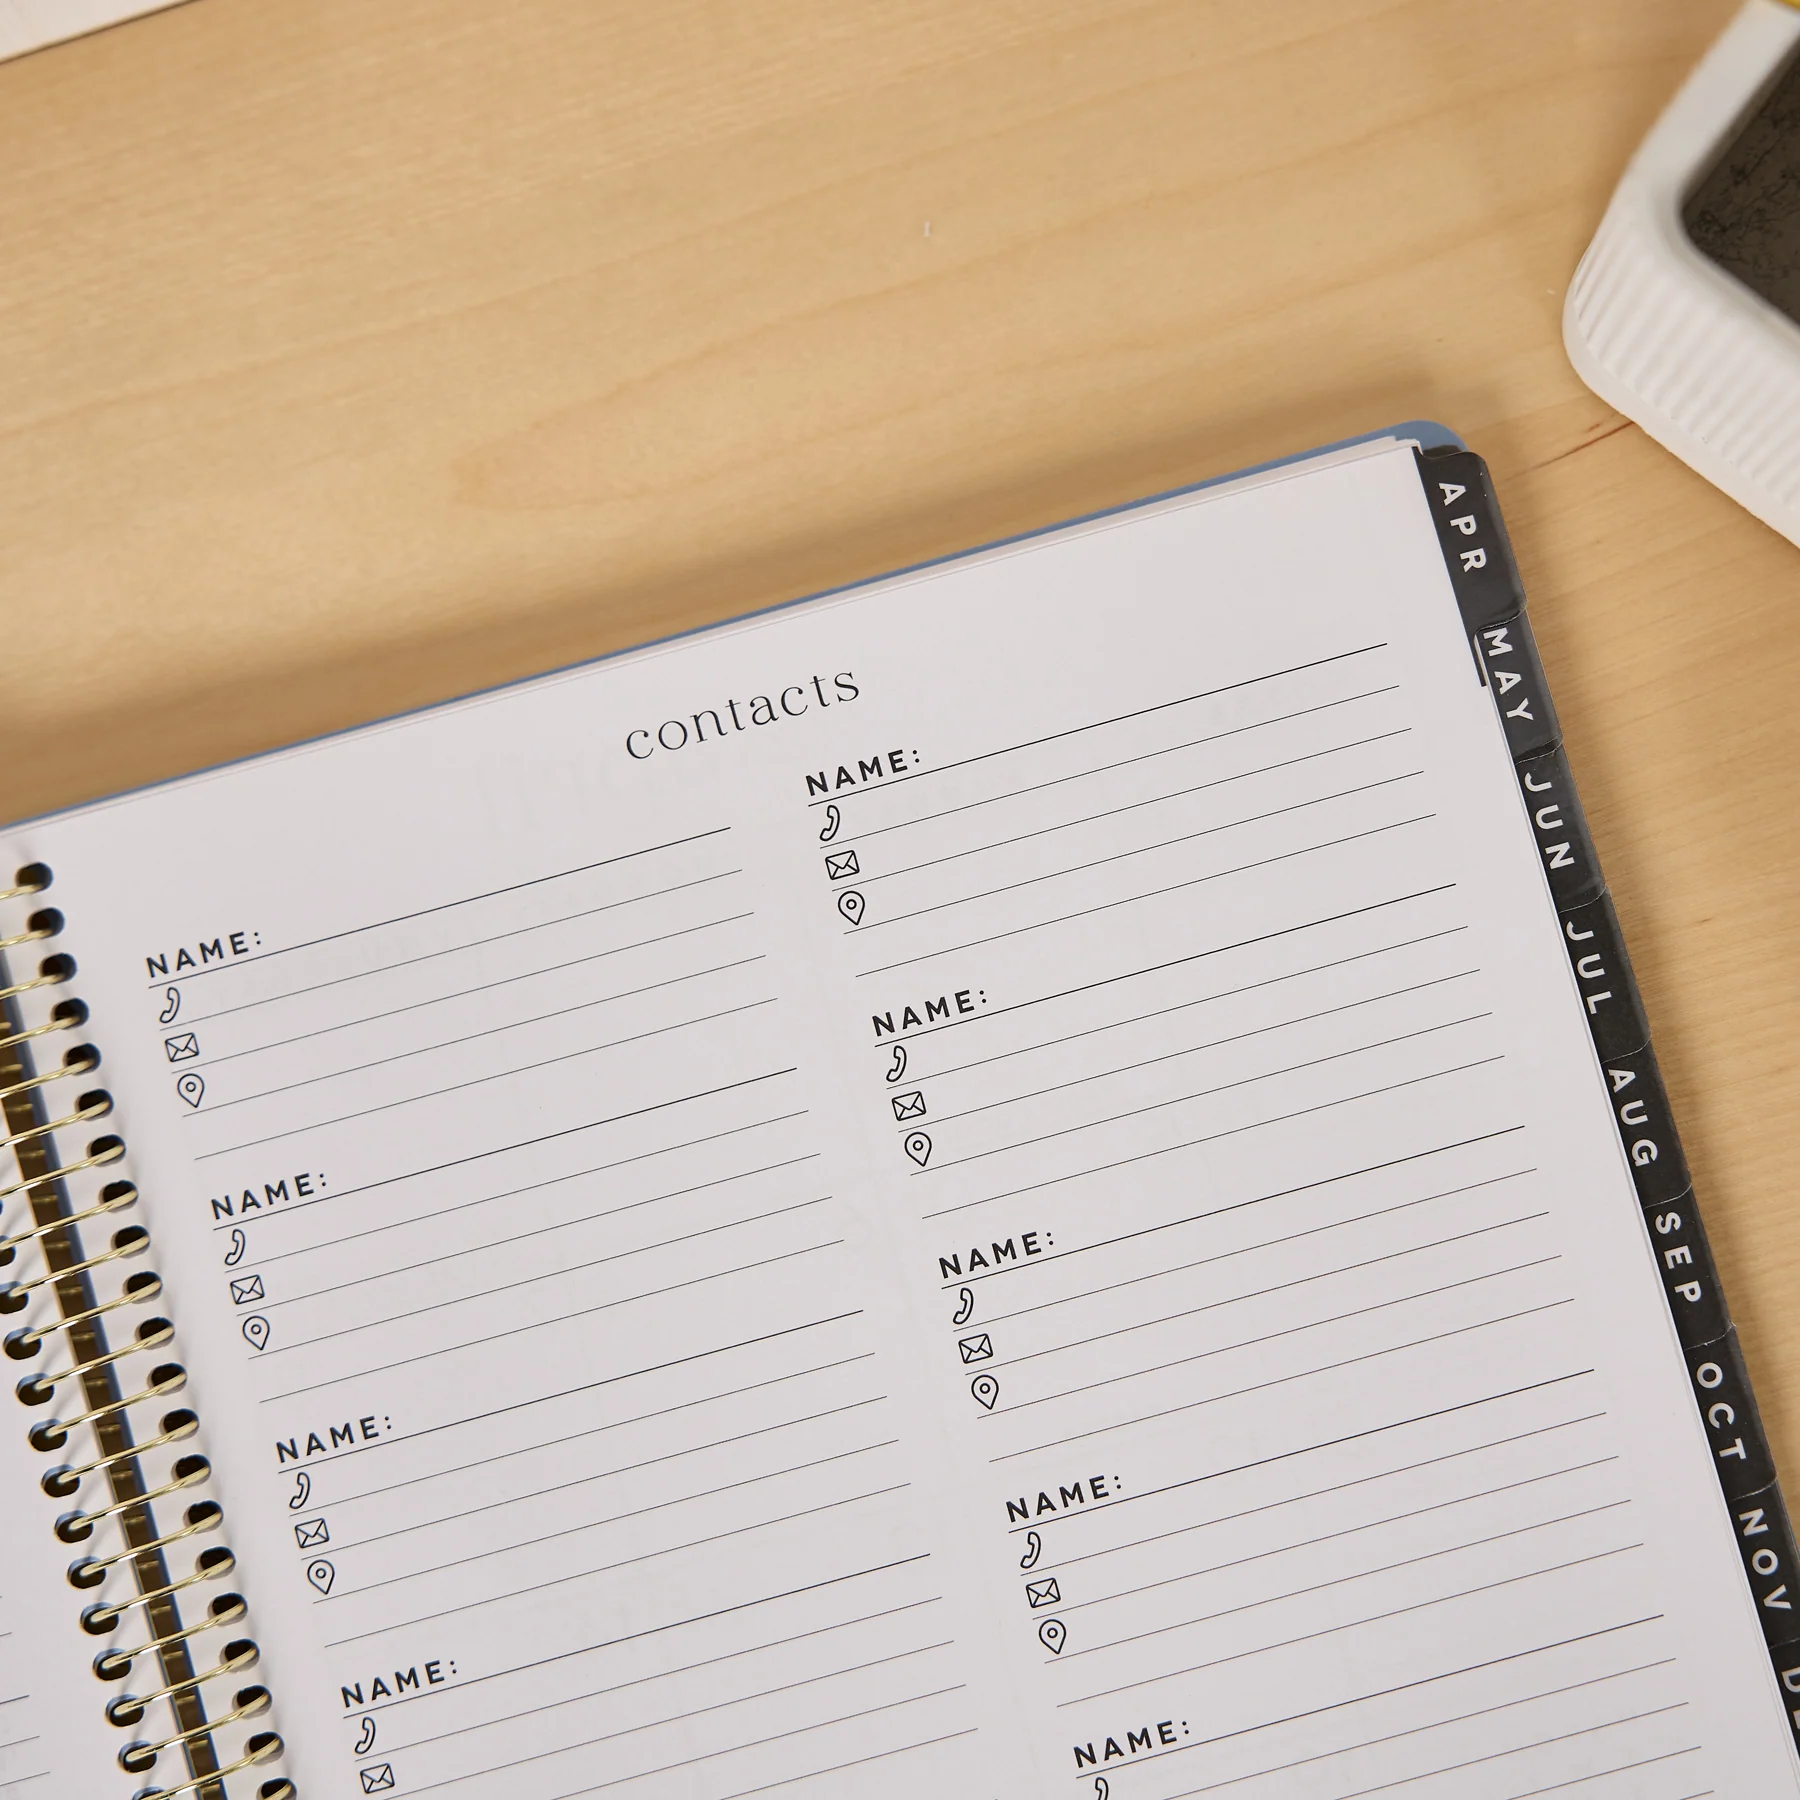 contacts
NAME:
NAME:
NAME:
NAME:
NAME:
NAME:
NAME:
NAME:
NAME:
APR
MAY
JUN
JUL
AUG
SEP
OCT
NOV